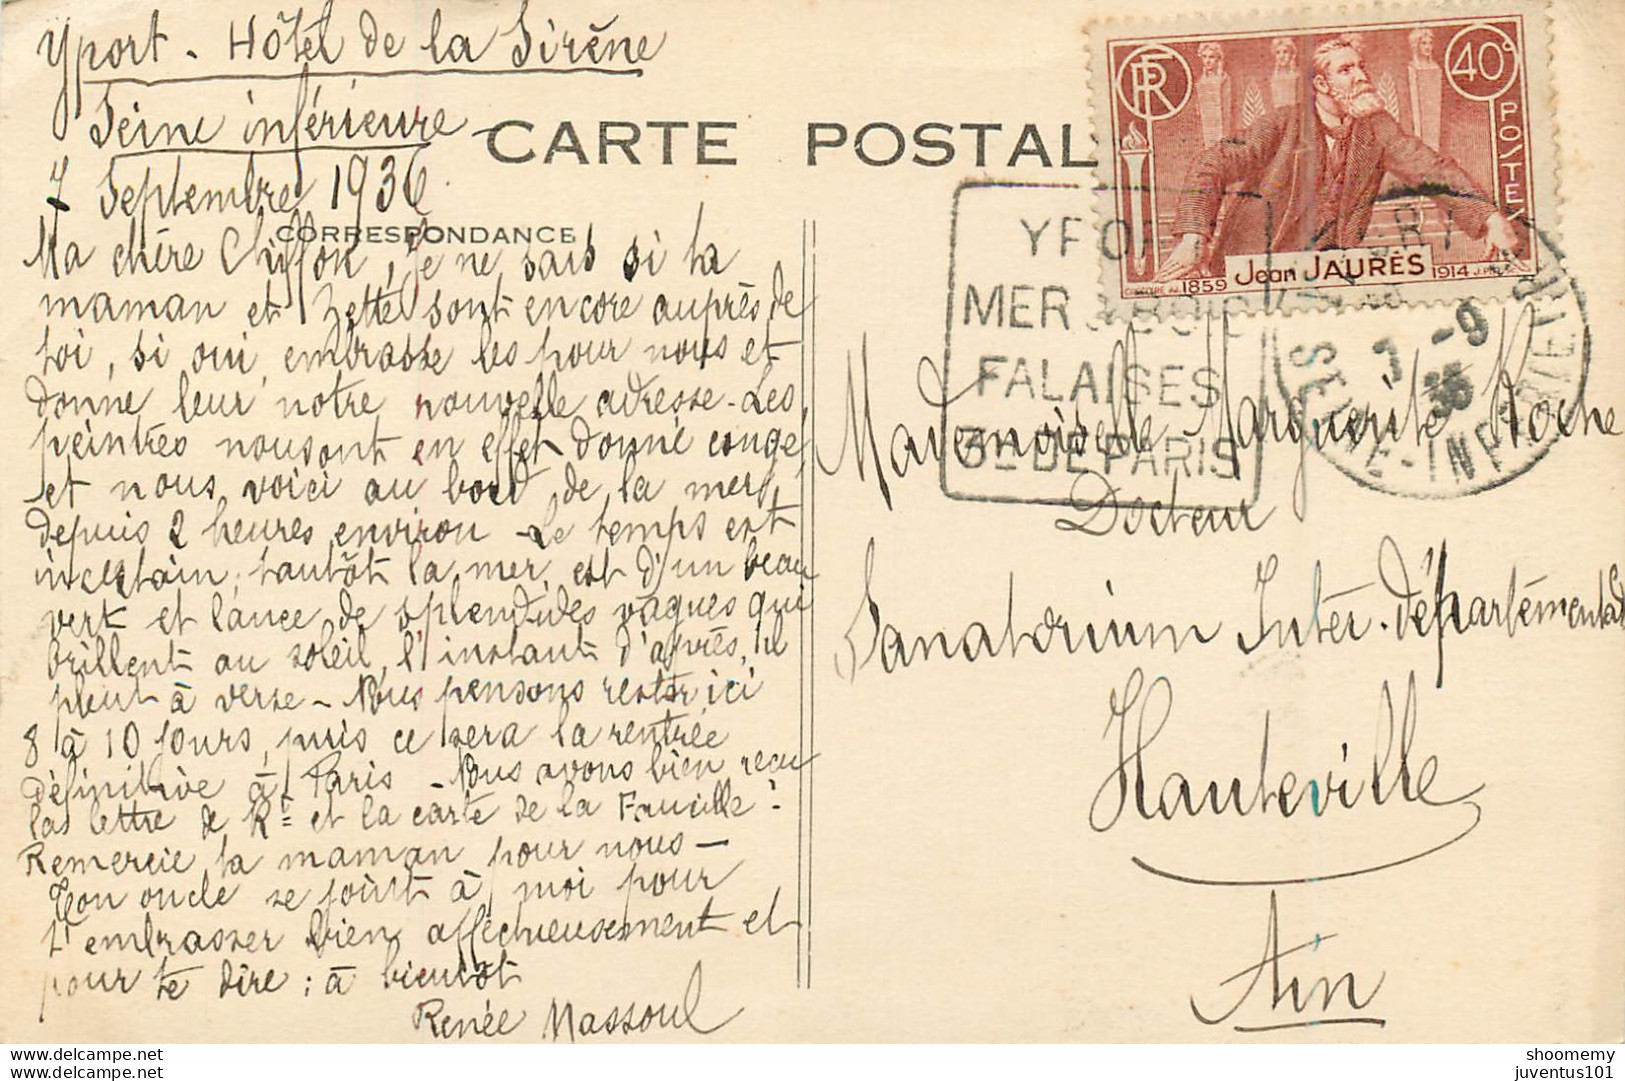 Yport - Hôtel de la Sirène
Seine inférieure
7 Septembre 1936
CARTE POSTAL
CORRESPONDANCE
Ma chère Chiffon, Je ne sais si ta
maman et Zette sont encore auprès de
toi, si oui, embrasse les pour nous et
donne leur notre nouvelle adresse - Les
peintres nous ont en effet donné congé
et nous voici au bord de la mer,
depuis 2 heures environ - Le temps est
incertain; tantôt la mer est d'un beau
vert et lance de splendides vagues qui
brillent au soleil, l'instant d'après, il
pleut à verse - Nous pensons rester ici
8 à 10 jours, puis ce sera la rentrée
définitive à Paris - Nous avons bien reçu
la lettre de et la carte de la Faucille -
Remercie ta maman pour nous -
Ton oncle se joint à moi pour
t'embrasser bien affectueusement et
pour te dire : à bientôt
Renée Massoul
RF
40c
POSTES
Jean JAURÈS
1859
1914
YPORT
MER
FALAISES
3H DE PARIS
7 -9
36
SEINE-INFRIEURE
Mademoiselle Marguerite Roche
Docteur
Sanatorium Inter-départemental
Hauteville
Ain
shoomemy
juventus101